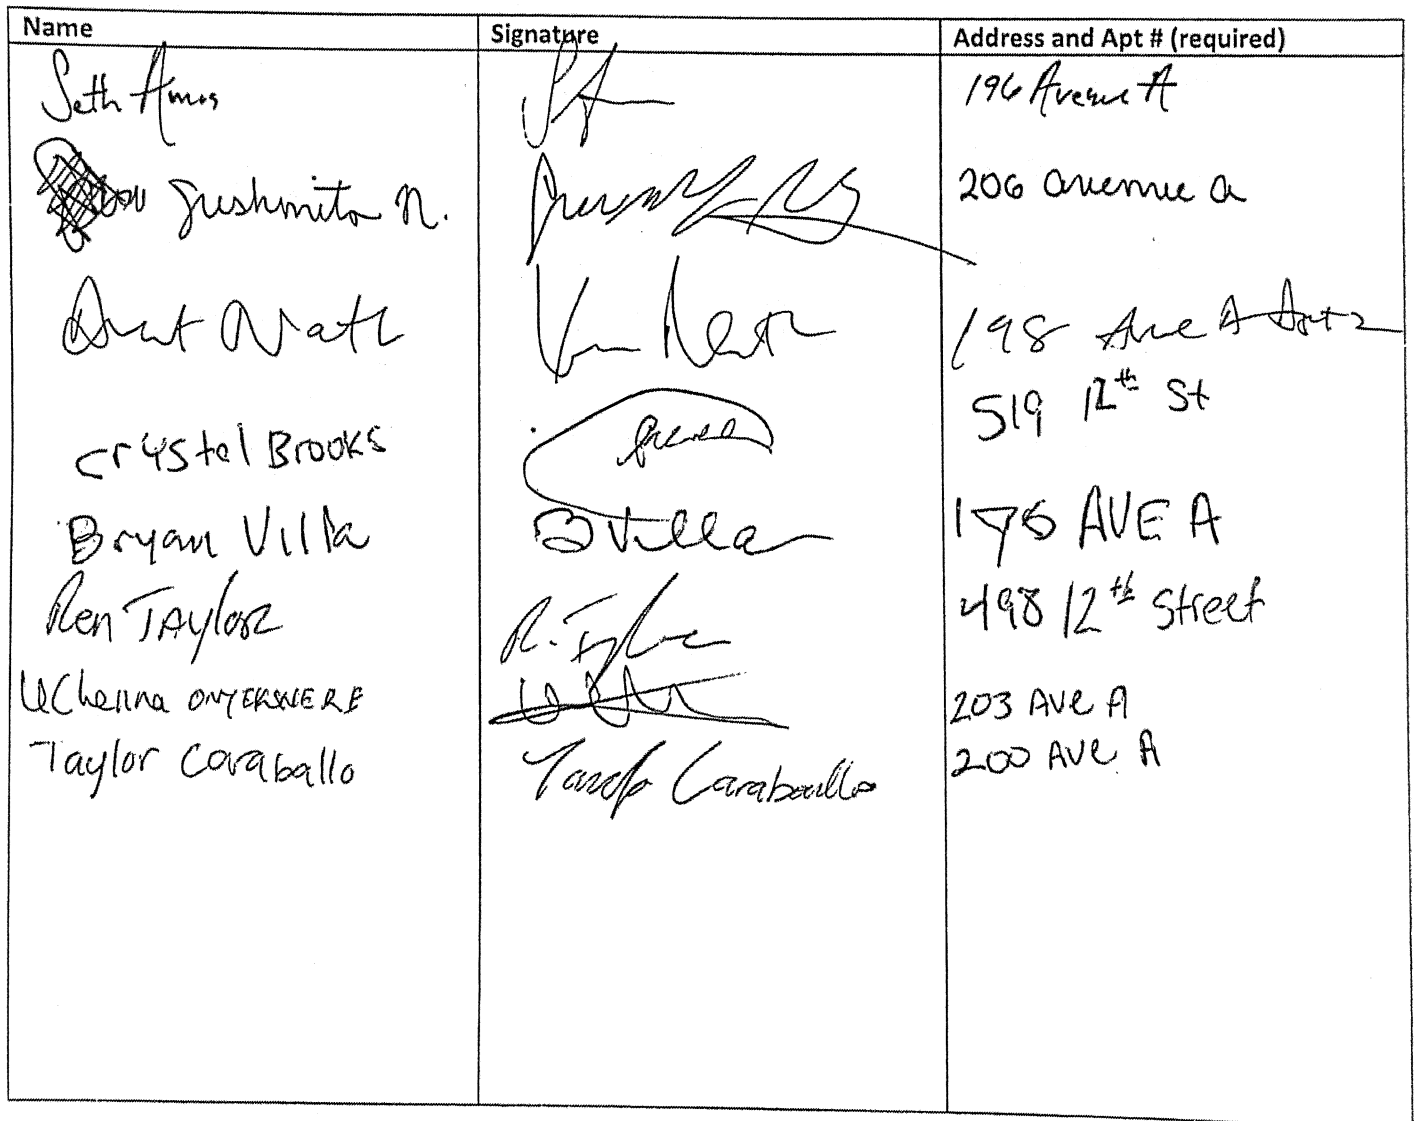 Name Signature Address and Apt # (required)
Seth Amos 196 Avenue A
Sushmita N. 206 avenue a
Nath 198 Ave A Apt 2
Crystal Brooks 519 12th St
Bryan Villa B Villa AVE A
Ren TAYlor R. Taylor 498 12th Street
UChenna ONYEKWERE 203 AVe A
Taylor Caraballo Taylor Caraballo 200 AVe A